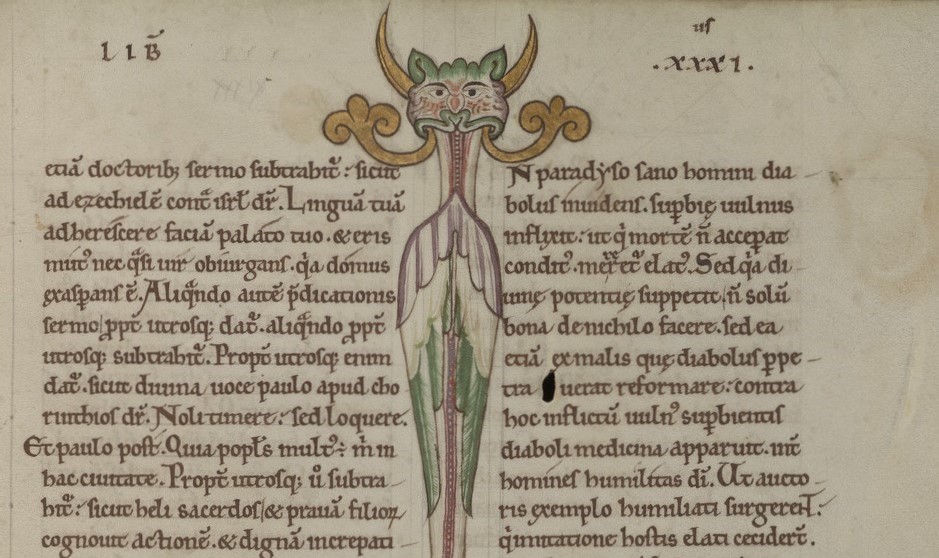 LIB̄
.xxxi.us
etiā doctorib; sermo subtrahit᷑ : sicut
ad ezechielē cont᷑ isrl̄ dr̄. Linguā tuā
adherescere faciā palato tuo. & eris
mut᷒ nec q̄si uir obiurgans. q̄a domus
exasp̄ans ē. Aliq̄ndo autē p̄dicationis
sermo ꝓpt᷑ utrosq; dat᷑. aliq̄ndo ꝓpt᷑
utrosq; subtrahit᷑. Propt᷑ utrosq; enim
dat᷑. sicut diuina uoce paulo apud cho
rinthios dr̄. Noli timere : sed loquere.
Et paulo post. Quia popl̄s mult᷒ ÷ m̄ in
hac ciuitate. Propt᷑ utrosq; ů subtra-
hit᷑ : sicut heli sacerdos & prauā filioꝝ
cognouit actionē. & dignā increpati-
N paradẏso sano homini dia-
bolus inuidens. suꝑbię uulnus
inflixit : ut q̇ mortē n̄ acceꝑat
condit᷒. elat᷒. Sed q̄a di
uinę potentię suppetit, n̄ solū
bona de nichilo facere. sed ea
etiā ex malis quę diabolus ꝑpe-
tra uerat reformare : contra
hoc inflictū uuln᷒ suꝑbientis
diaboli medicina apparuit. int᷑
homines humilitas dī. Ut aucto-
ris exemplo humiliati surgerent :
q̇ imitatione hostis elati cecidert̄.